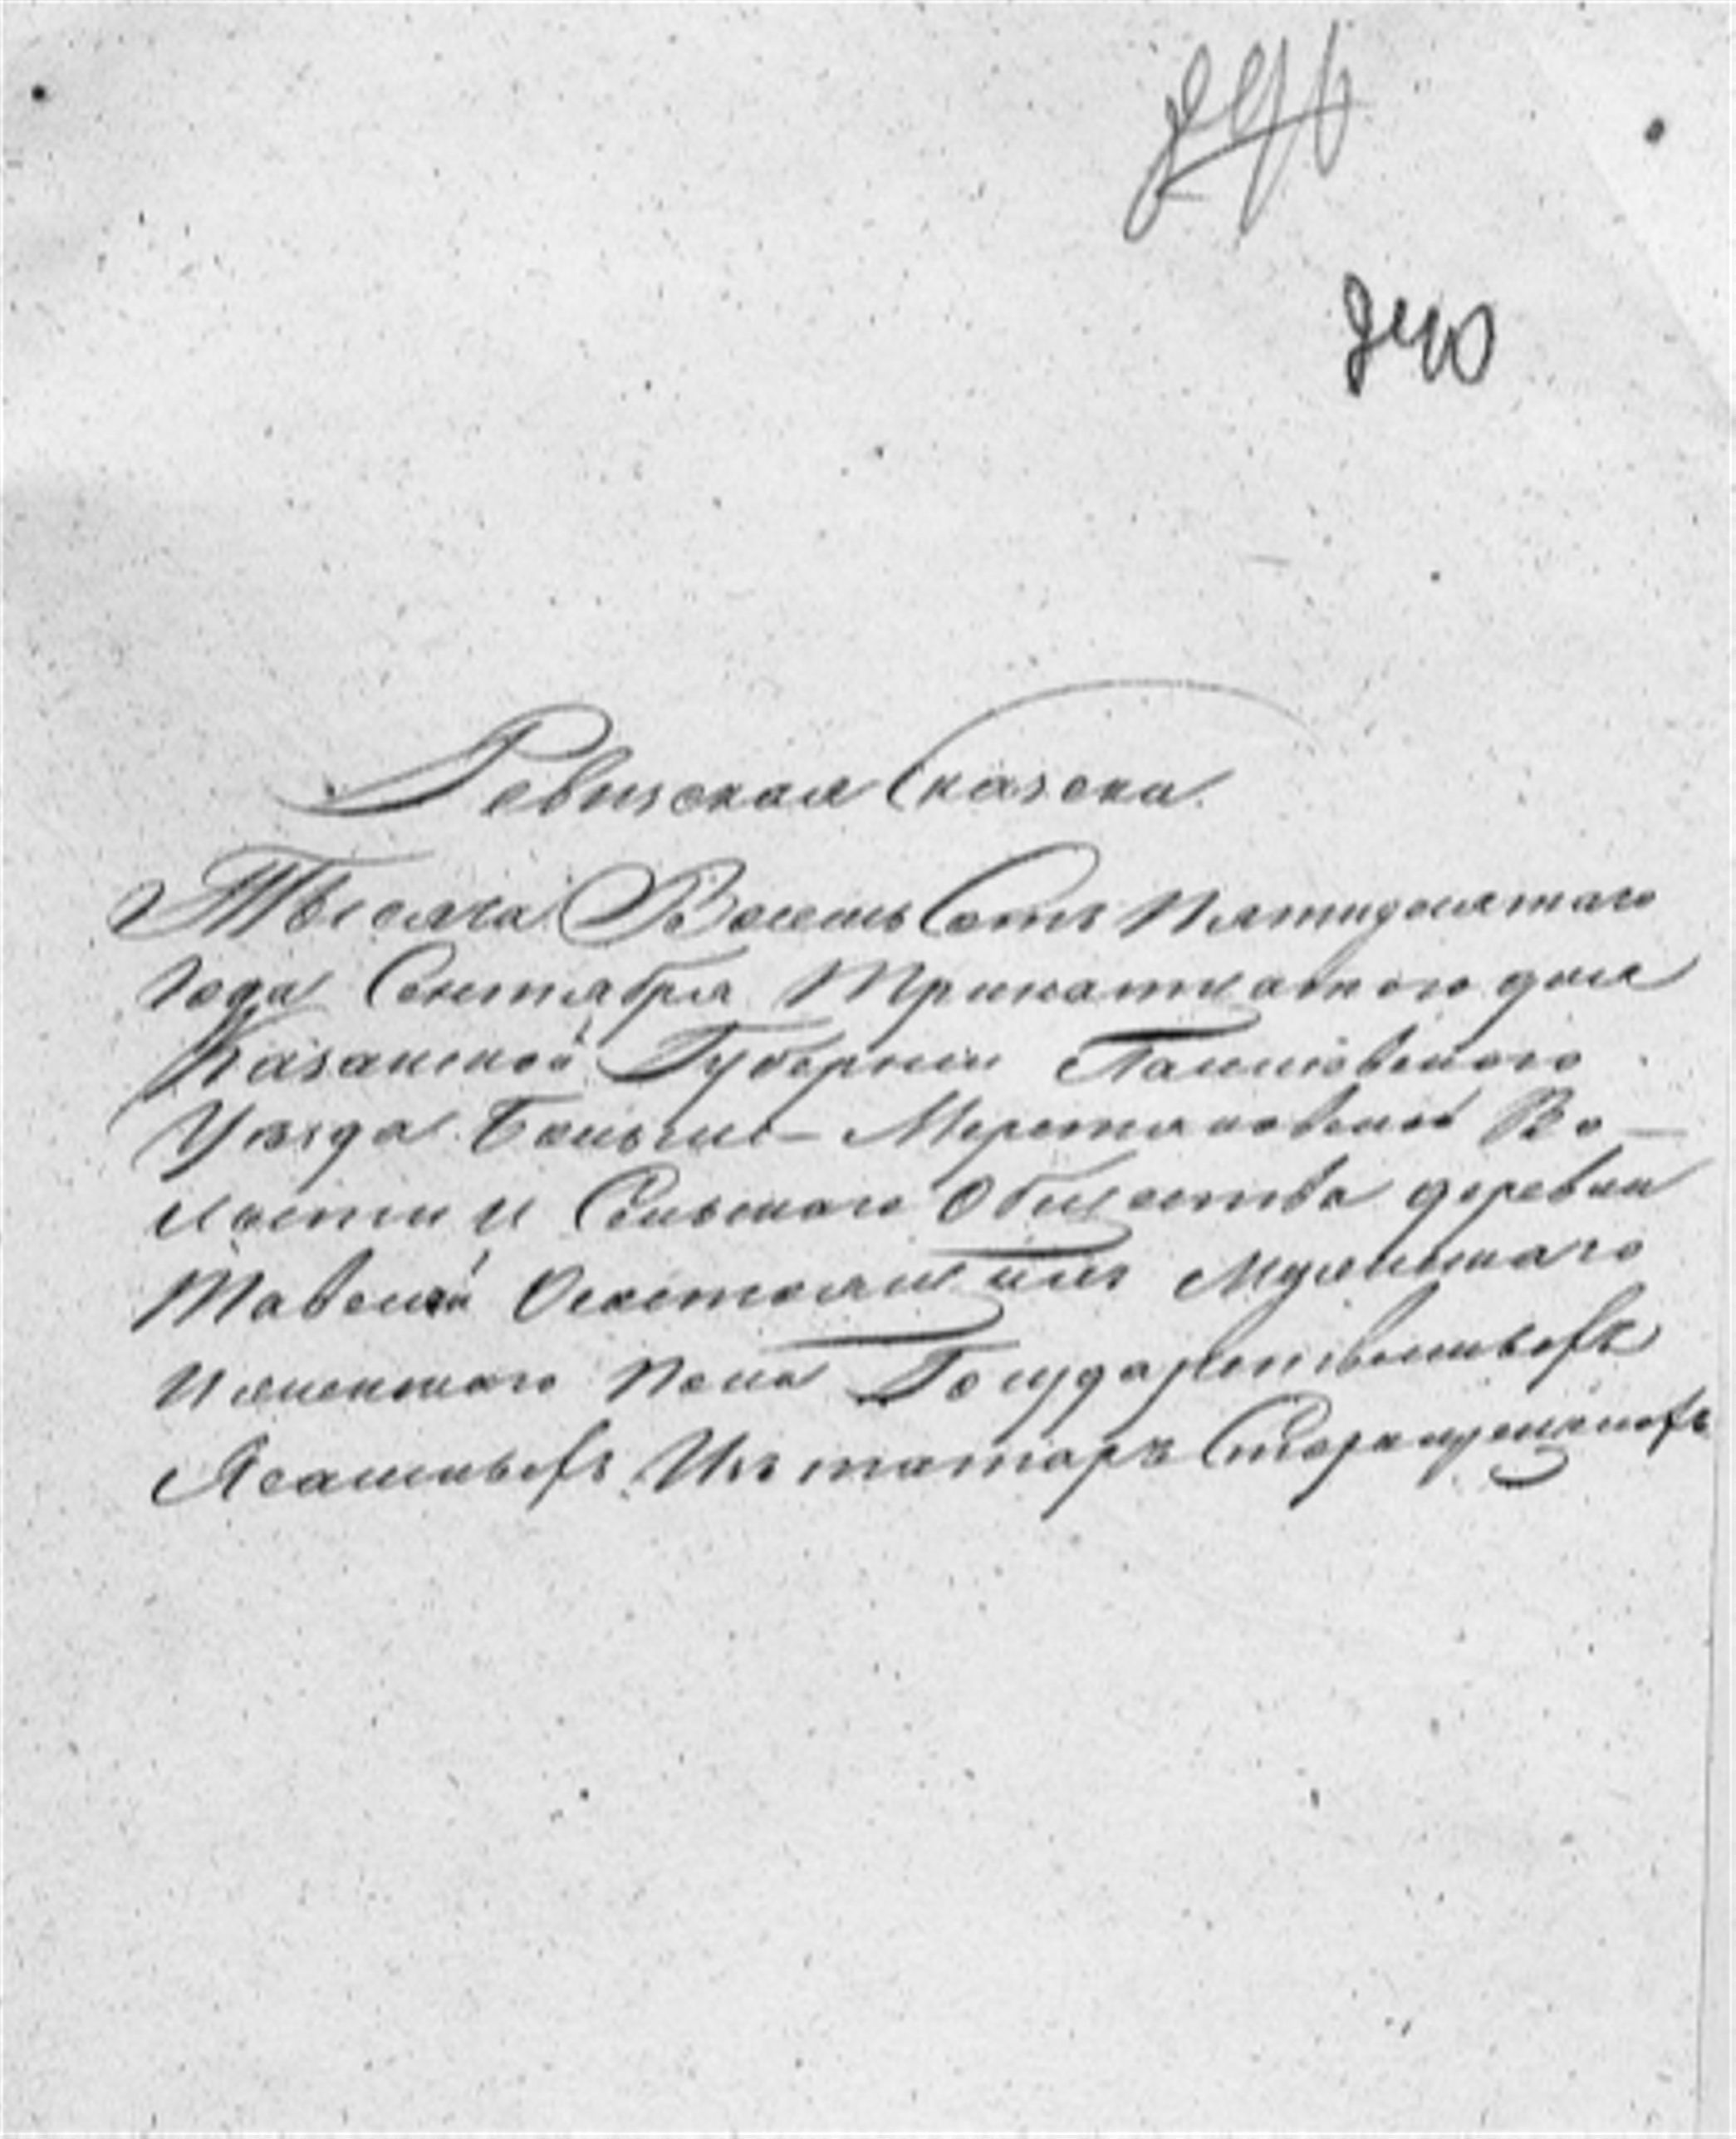 Ревизская Сказка.
Тысяча Восемь Сотъ Пятидесятаго
Года Сентября Тридцатого дня
Казанской Губернии
Уезда Больше- Меретяковской Во-
лости и Сельского Общества деревни
О состоящихъ Мужескаго
И женскаго Пола Государственныхъ
Ясашныхъ Изъ татаръ